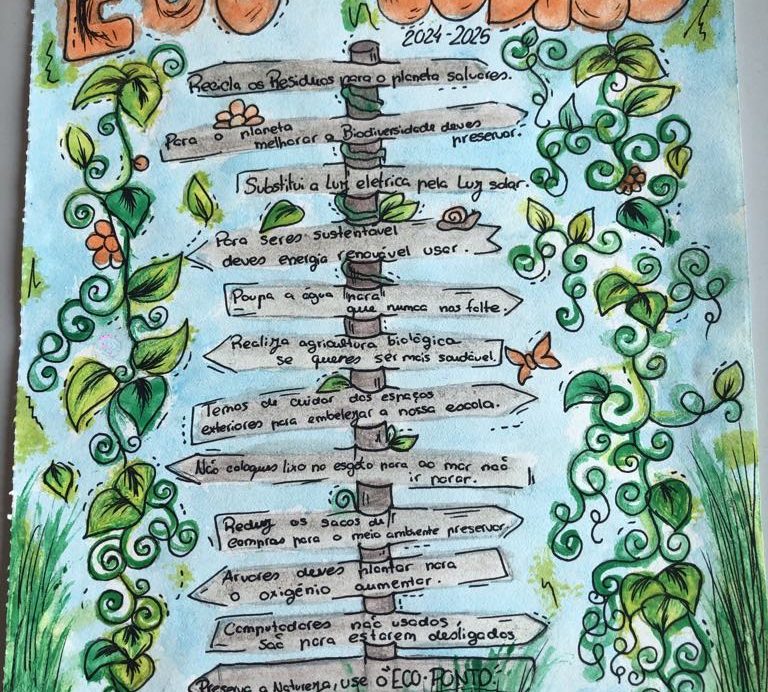 ECO
2024-2025
Recicla os Resíduos para o planeta salvares.
Para o planeta
melhorar a Biodiversidade deves
preservar.
Substitui a Luz eletrica pela Luz solar.
Para seres sustentável
deves energia renovável usar.
Poupa a água para
que nunca nos falte.
Realiza agricultura biológica
se queres ser mais saudável.
Temos de cuidar dos espaços
exteriores para embelezar a nossa escola.
Não coloques lixo no esgoto para ao mar não
ir parar.
Reduz os sacos de
compras para o meio ambiente preservar.
Arvores deves plantar para
o oxigénio aumentar.
Computadores não usados,
são para estarem desligados
Preserva a Natureza, use o "ECO-PONTO".